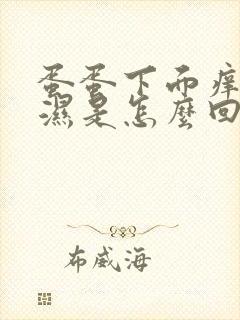 蛋蛋下面痒
濕是怎麼回
布威海